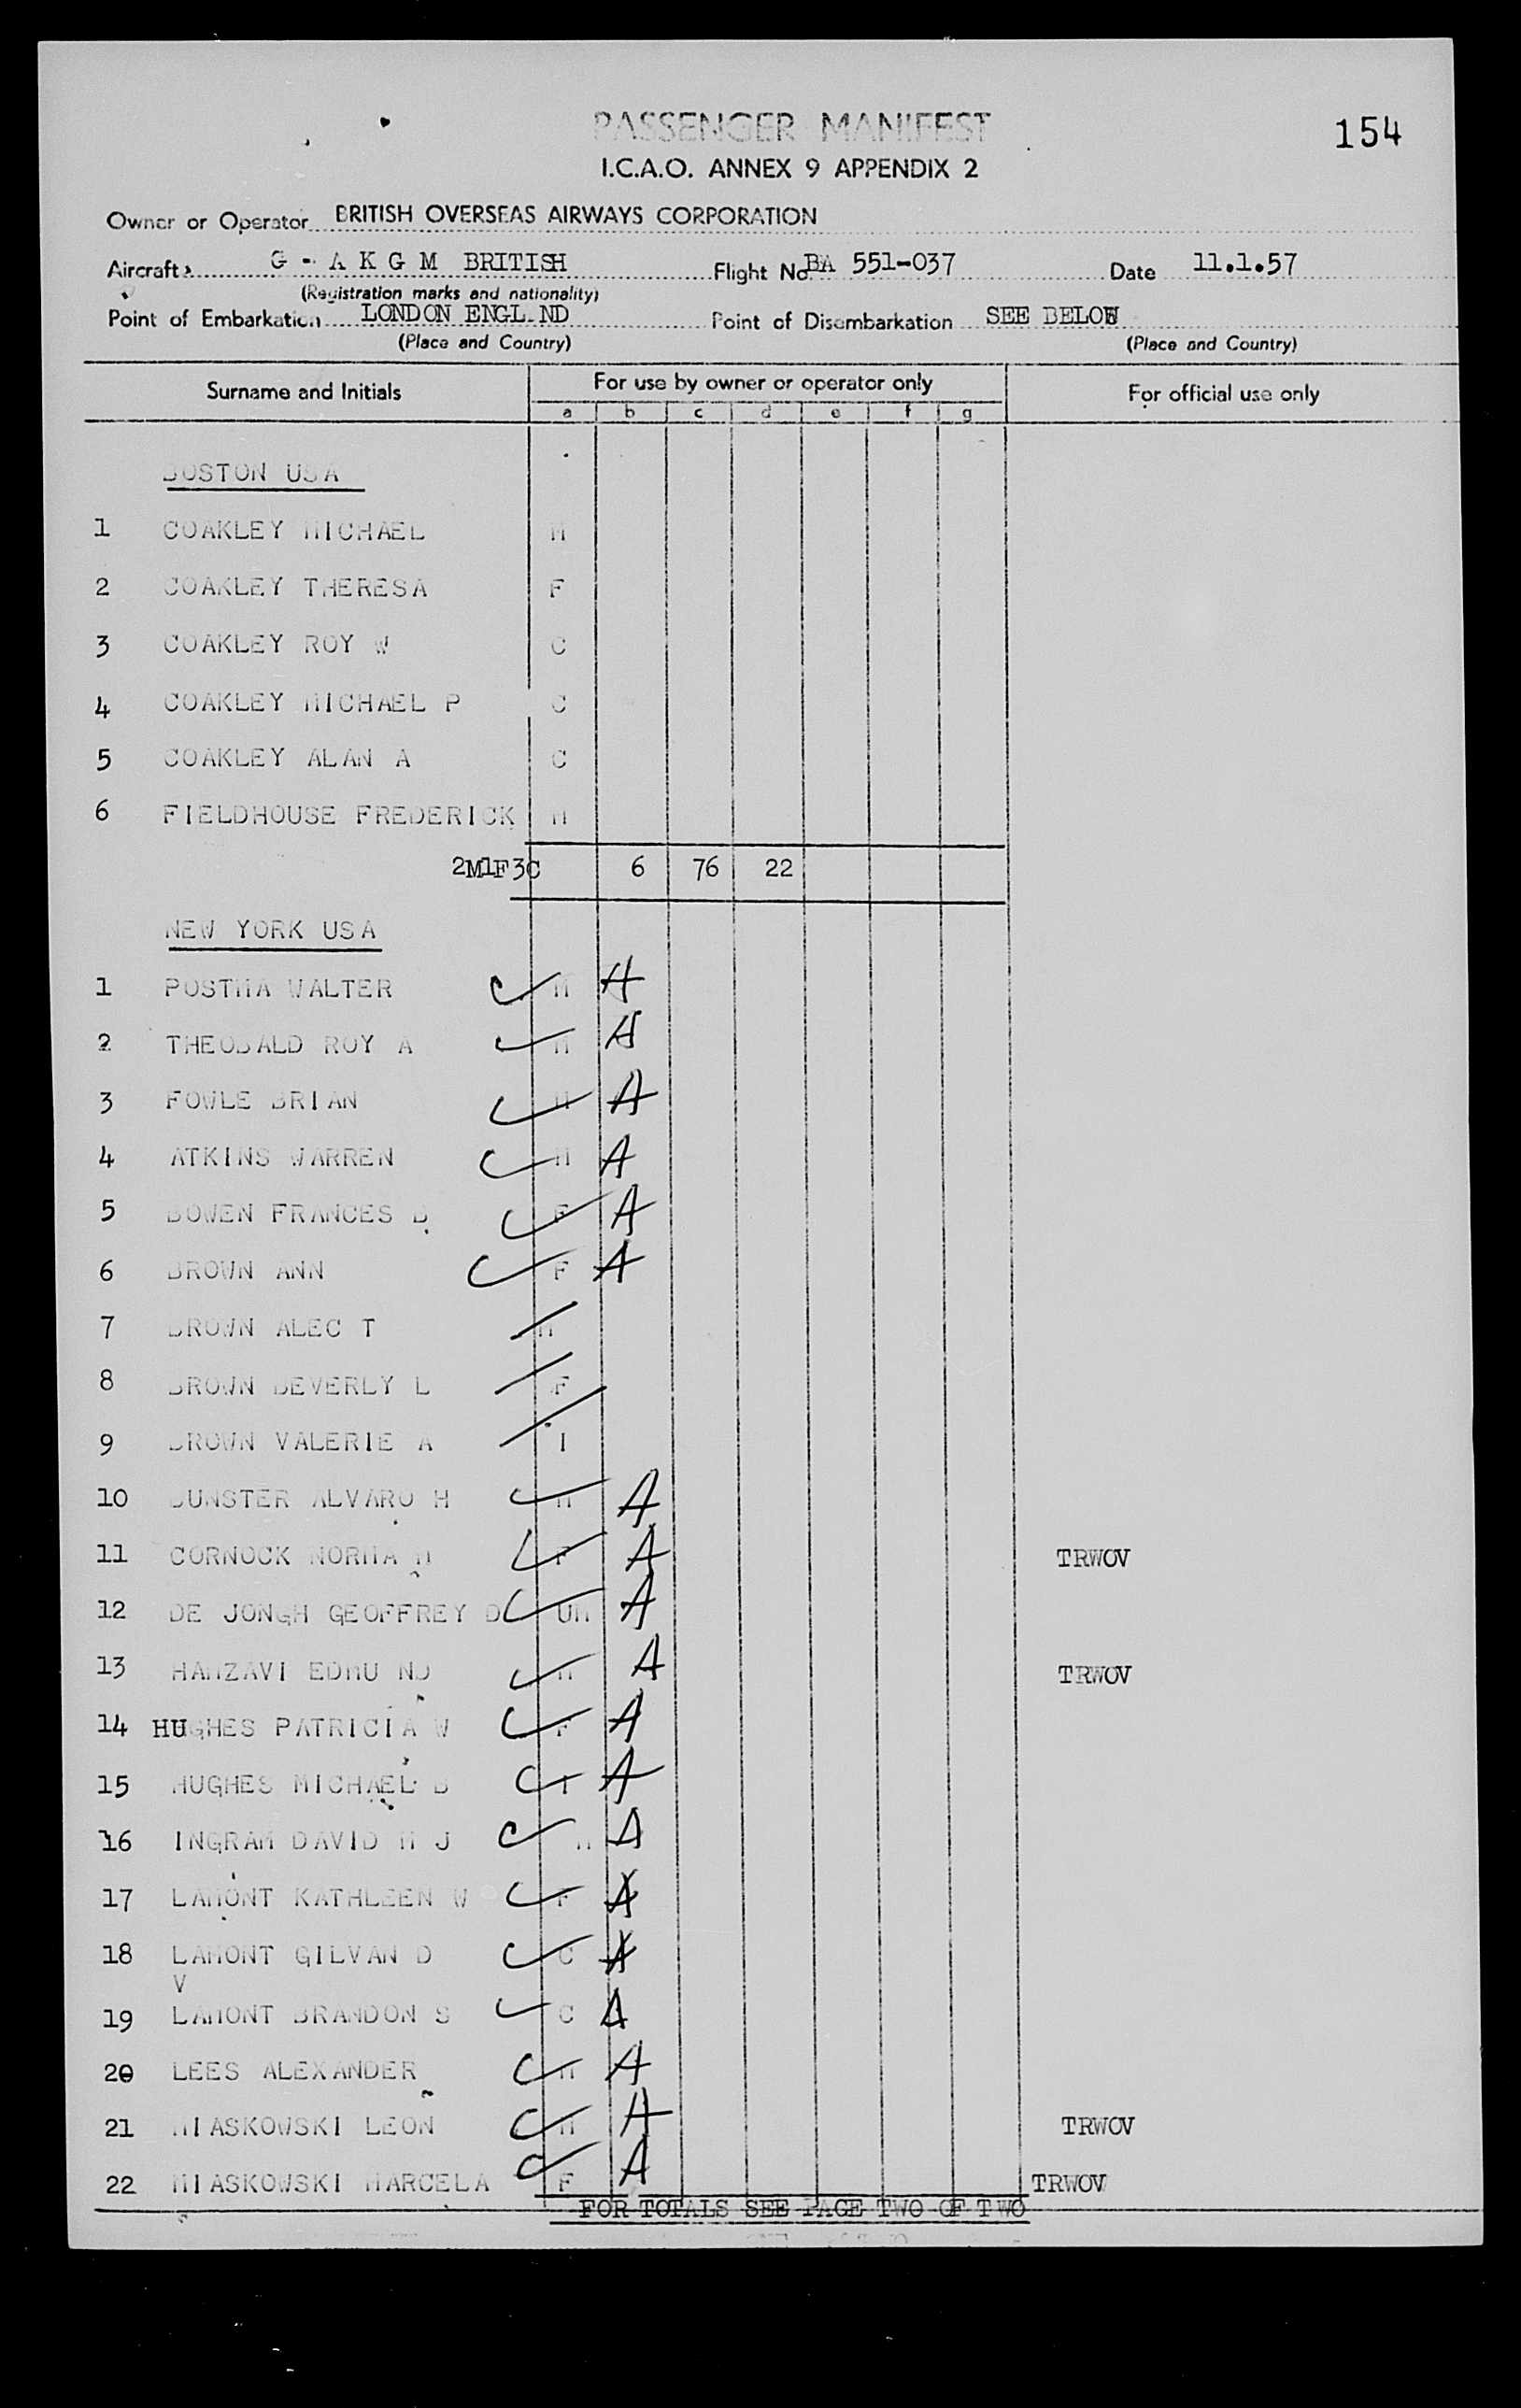 PASSENGER MANIFEST
154
I.C.A.O. ANNEX 9 APPENDIX 2
Owner or Operator BRITISH OVERSEAS AIRWAYS CORPORATION
Aircraft G - A K G M BRITISH Flight No BA 551-037 Date 11.1.57
(Registration marks and nationality)
Point of Embarkation LONDON ENGL ND Point of Disembarkation SEE BELOW
(Place and Country) (Place and Country)
Surname and Initials For use by owner or operator only For official use only
a b c d e f g
BOSTON USA
1 COAKLEY MICHAEL M
2 COAKLEY THERESA F
3 COAKLEY ROY W C
4 COAKLEY MICHAEL P C
5 COAKLEY ALAN A C
6 FIELDHOUSE FREDERICK M
2M1F3C 6 76 22
NEW YORK USA
1 POSTMA WALTER M A
2 THEOBALD ROY A M A
3 FOWLE BRIAN M A
4 ATKINS WARREN M A
5 BOWEN FRANCES B F A
6 BROWN ANN F A
7 BROWN ALEC T M
8 BROWN BEVERLY L F
9 BROWN VALERIE A I
10 BUNSTER ALVARO H M A
11 CORNOCK NORMA M F A TRWOV
12 DE JONGH GEOFFREY D UM A
13 HAMZAVI EDMU ND M A TRWOV
14 HUGHES PATRICIA W F A
15 HUGHES MICHAEL B I A
16 INGRAM DAVID M J M A
17 LAMONT KATHLEEN W F A
18 LAMONT GILVAN D C A
V
19 LAMONT BRANDON S C A
20 LEES ALEXANDER M A
21 MIASKOWSKI LEON M A TRWOV
22 MIASKOWSKI MARCELA F A TRWOV
FOR TOTALS SEE PAGE TWO OF TWO